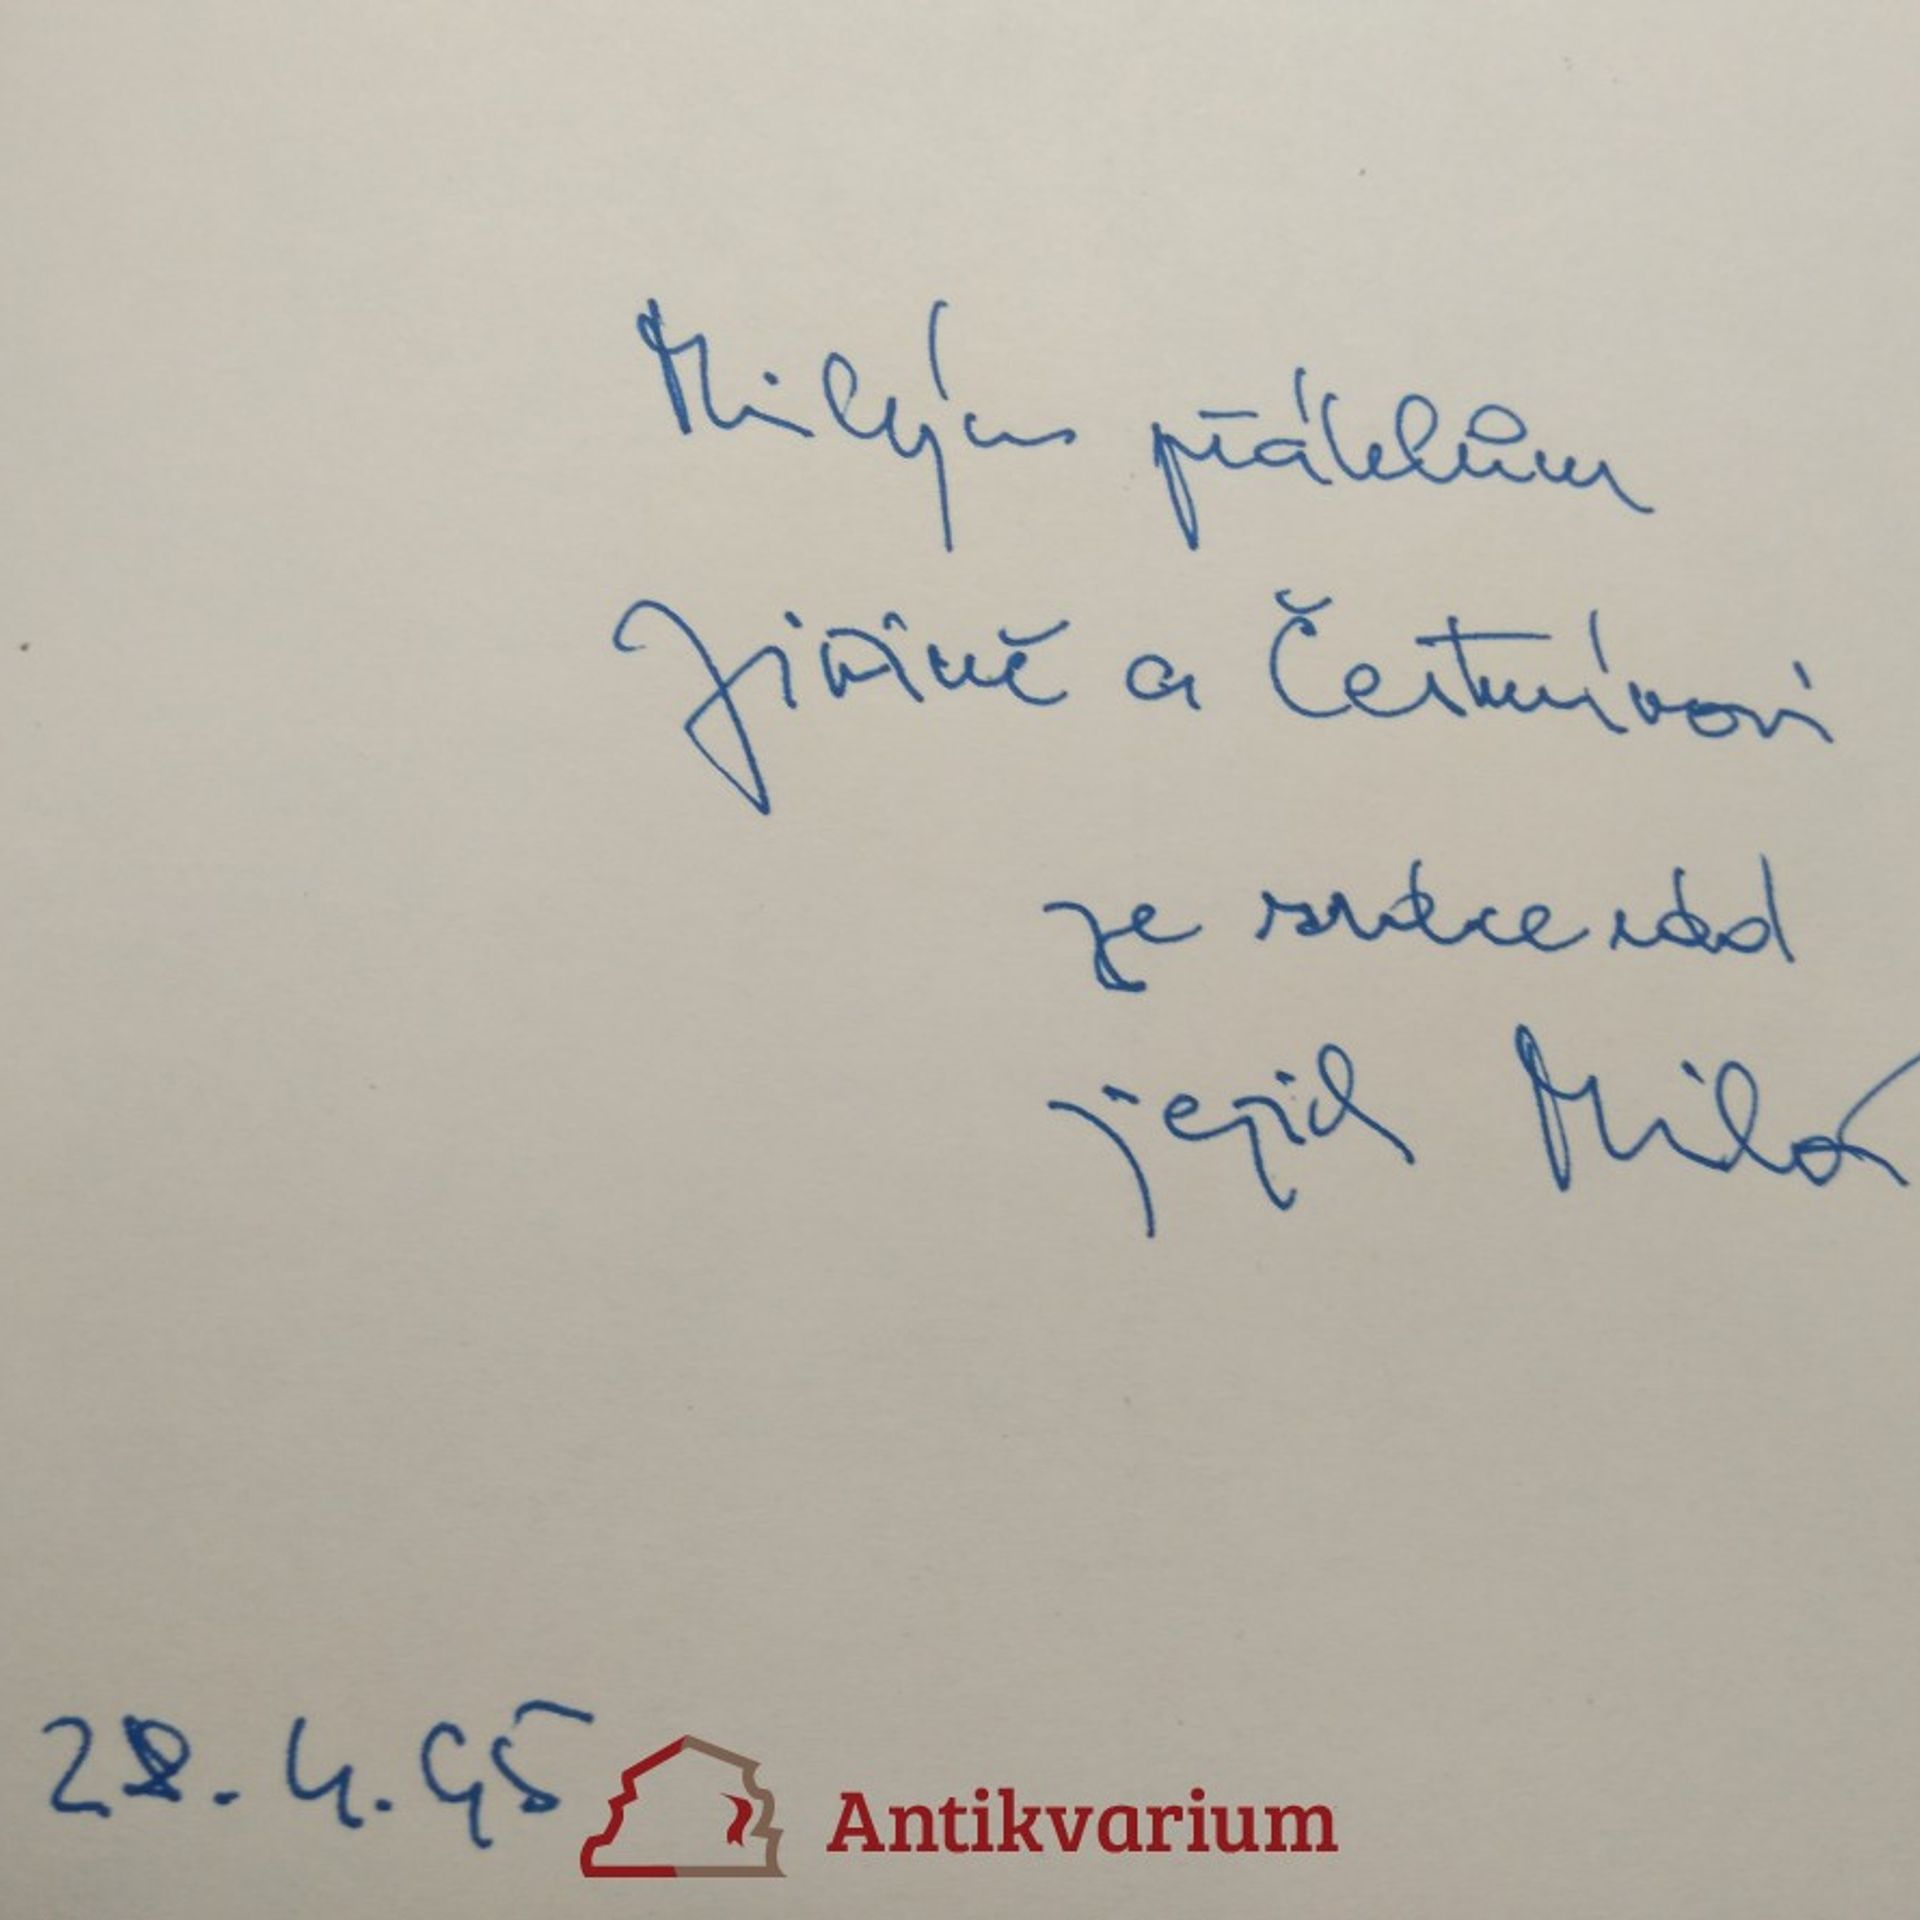 Milým přátelům
Jiřině a Čestmírovi
ze srdce rád
jejich Miloš
28. 4. 95
Antikvarium